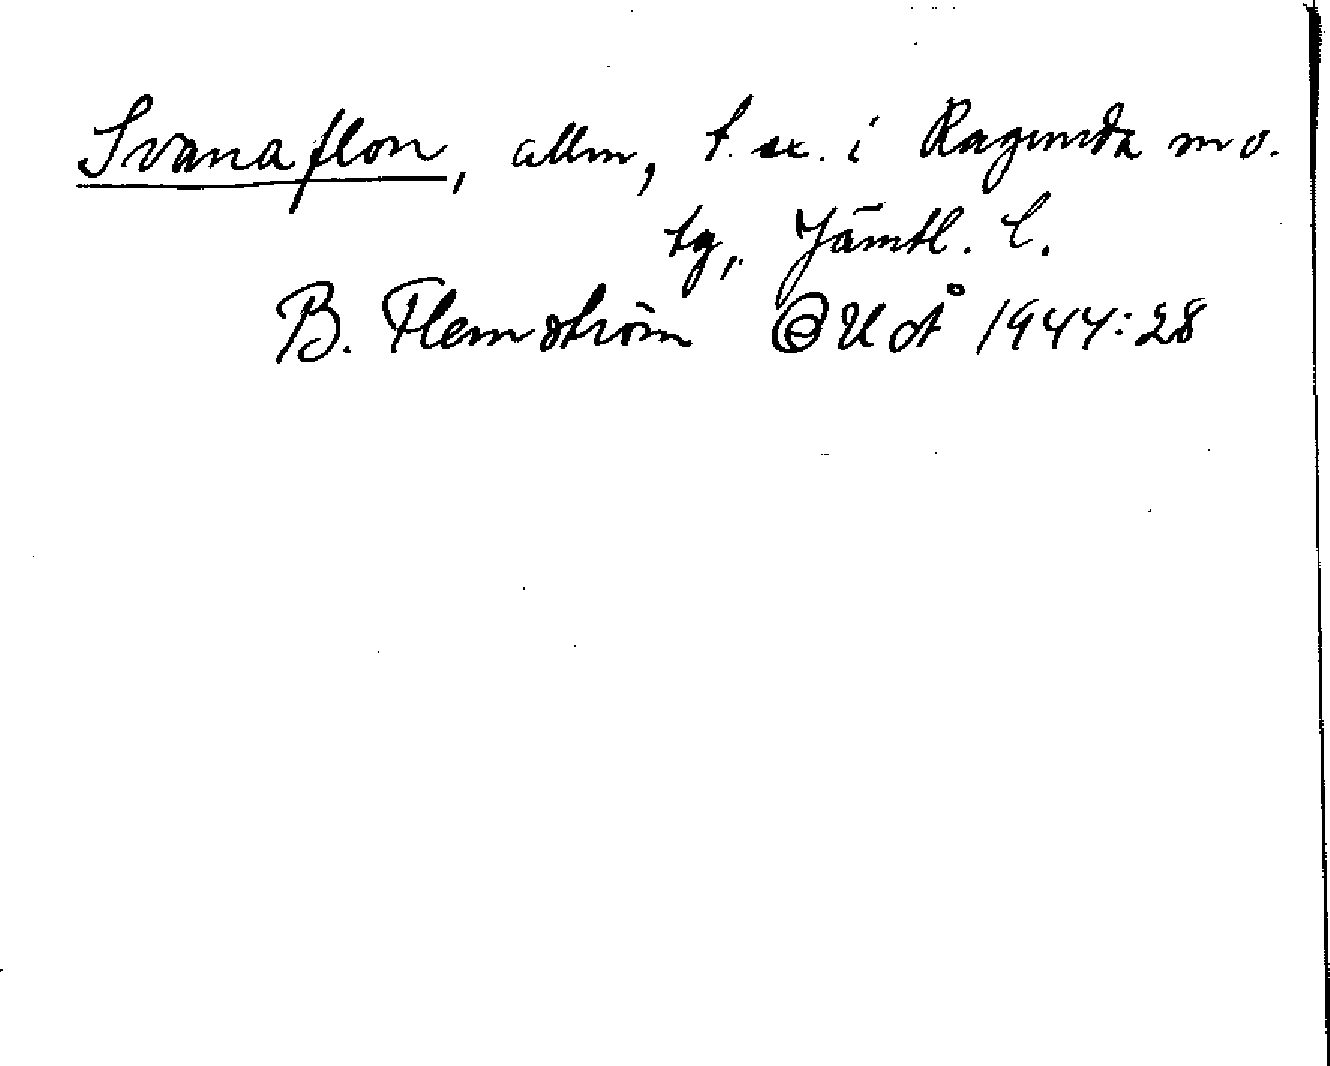 Svanaflon, allm, t. ex. i Ragunda m o.
tg, Jämtl. l.
B. Flemström OUoÅ 1944:28